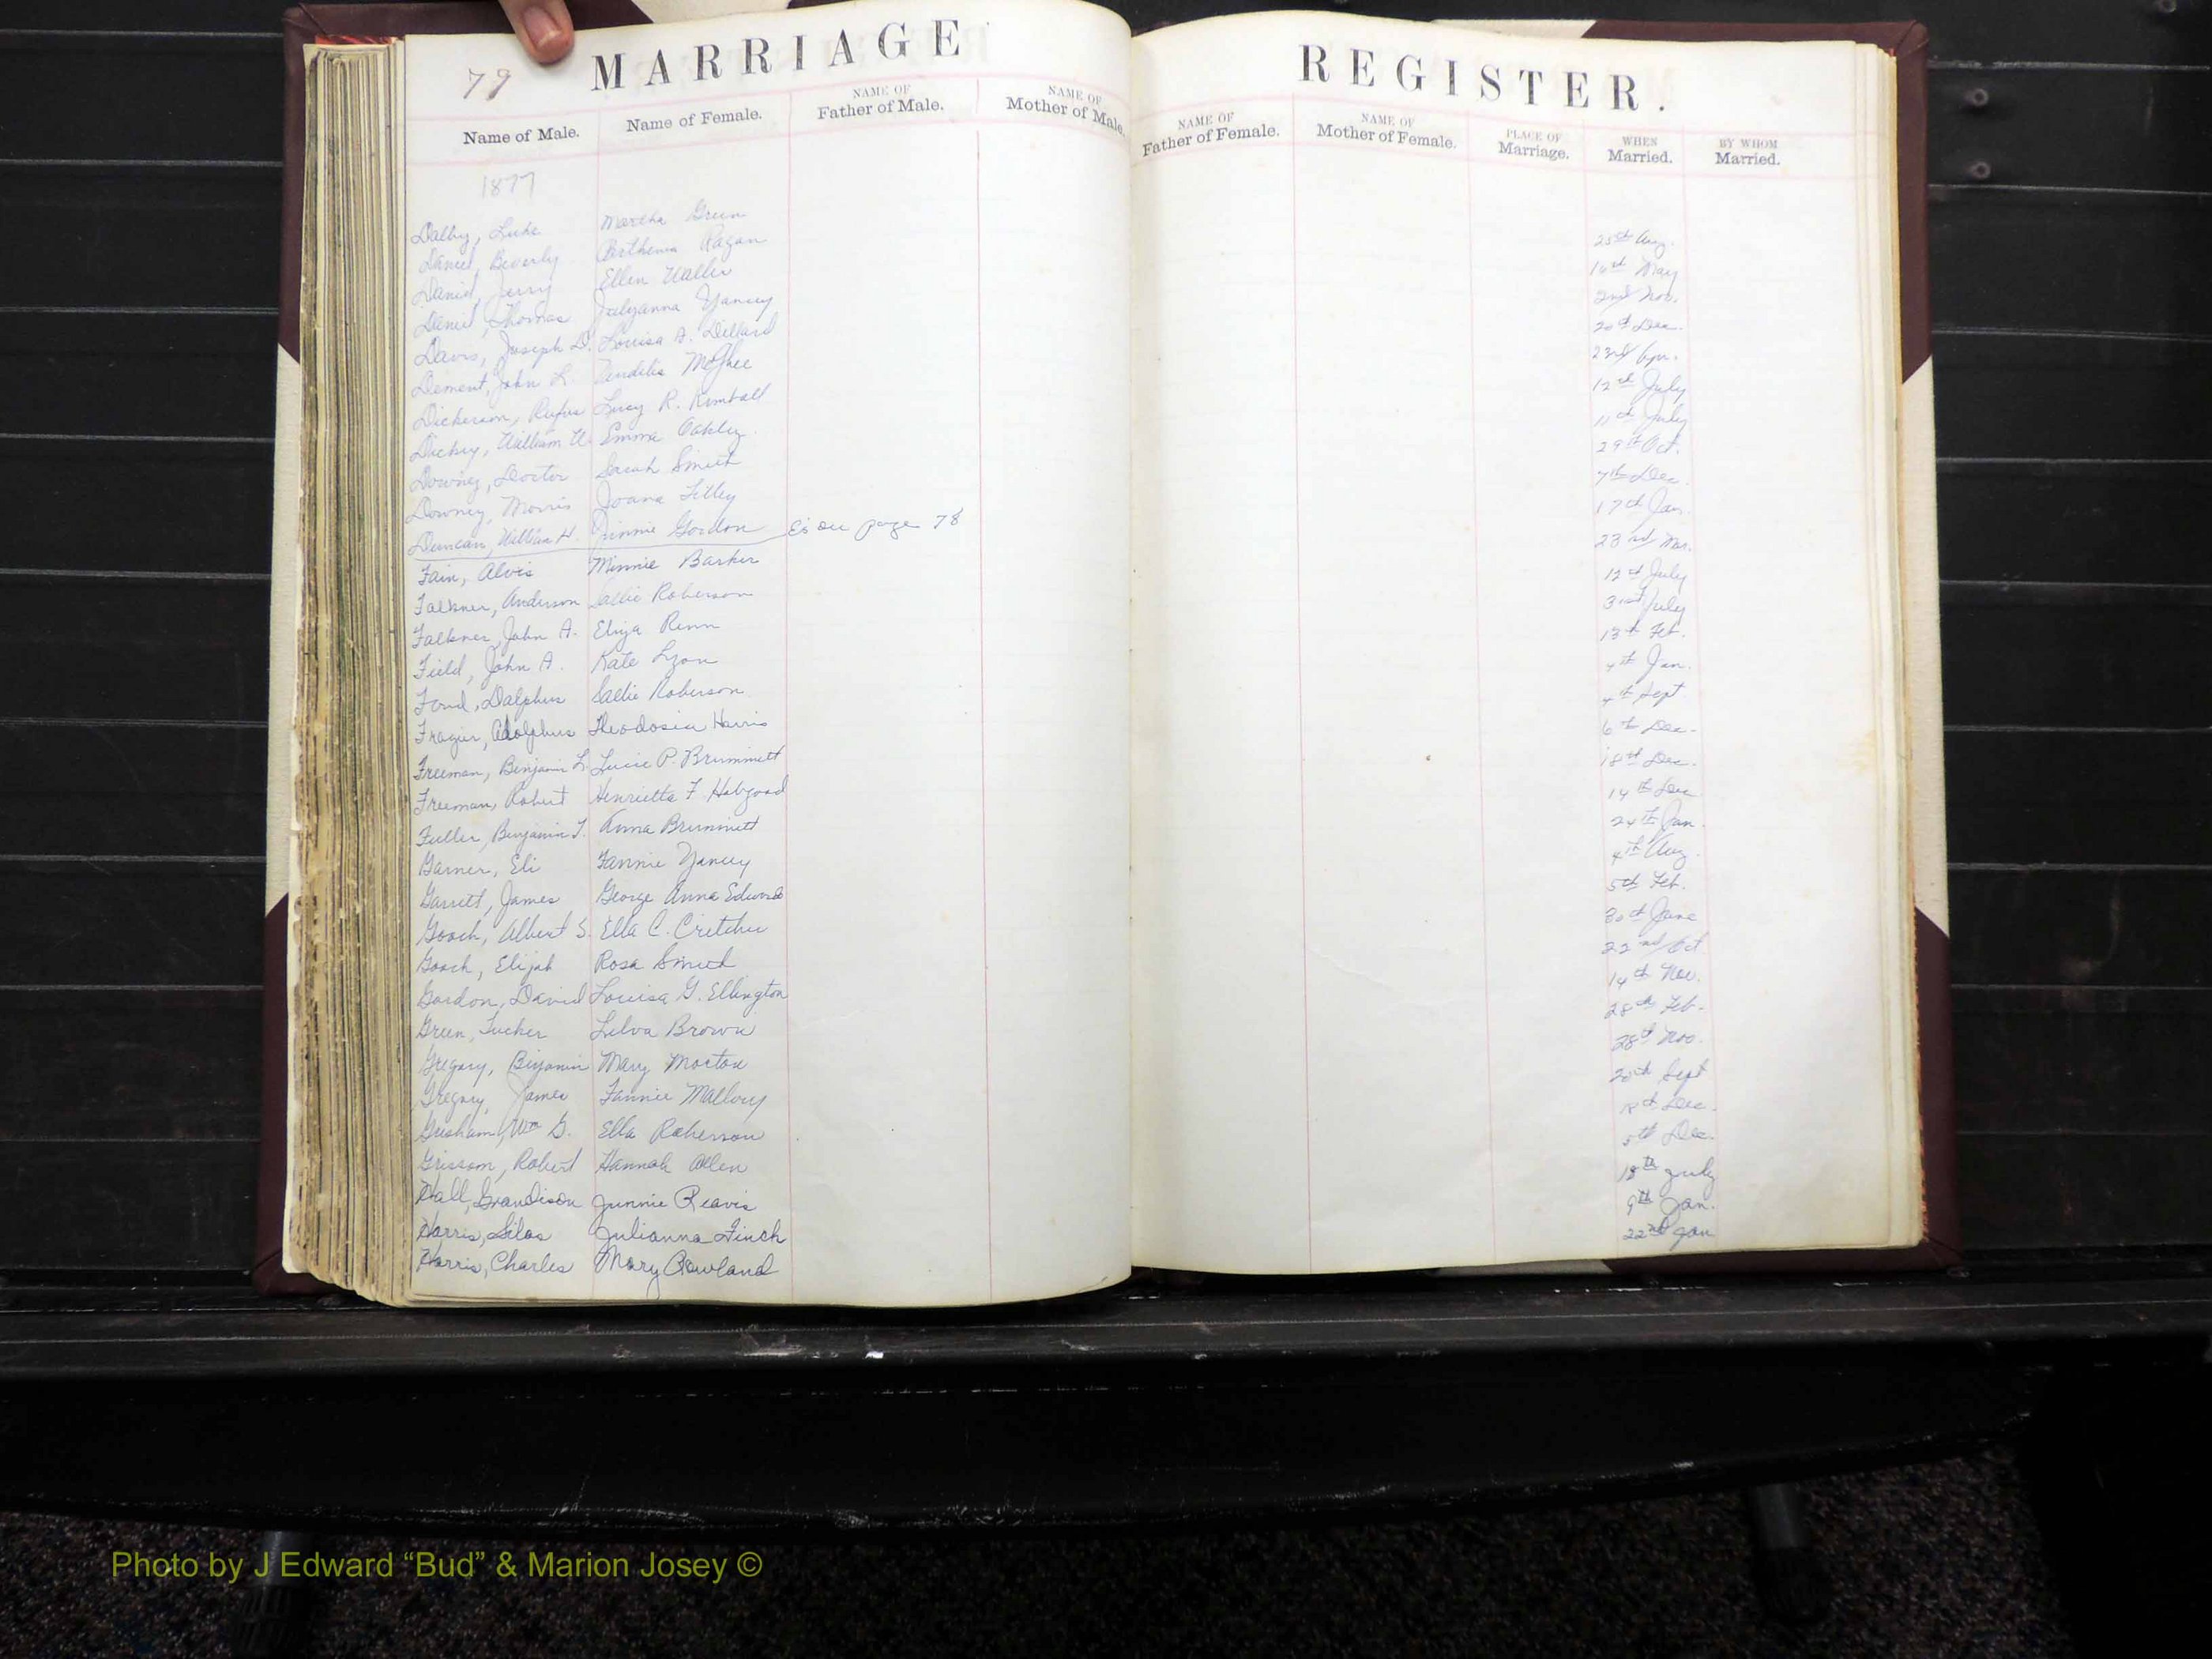 79 MARRIAGE REGISTER.
Name of Male. Name of Female. NAME OF Father of Male. NAME OF Mother of Male. NAME OF Father of Female. NAME OF Mother of Female. PLACE OF Marriage. WHEN Married. BY WHOM Married.
1877
Dalby, Luke Martha Green 25th Aug.
Daniel, Beverly Parthenia Ragan 16th May
Daniel, Jerry Ellen Waller 2nd Nov.
Daniel, Thomas Julyanna Yancey 20th Dec.
Davis, Joseph D. Louisa A. Dillard 23rd Apr.
Dement, John L. McGhee 12th July
Dickerson, Rufus Lucy R. Kimball 11th July
Dickey, William W. Emma Oakley 29th Oct.
Downey, Doctor Sarah Smith 7th Dec.
Downey, Morris Joana Tilley 17th Jan.
Duncan, William H. Jinnie Gordon E's on page 78 23rd Mar.
Fain, Alvis Minnie Barker 12th July
Falkner, Anderson Sallie Roberson 31st July
Falkner, John A. Eliza Renn 13th Feb.
Field, John A. Kate Lyon 4th Jan.
Ford, Dalphus Sallie Roberson 4th Sept
Frazier, Adolphus Theodosia Harris 6th Dec.
Freeman, Benjamin L. Lucie P. Brummitt 18th Dec.
Freeman, Robert Henrietta F. Hobgood 14th Dec
Fuller, Benjamin T. Anna Brummitt 24th Jan.
Garner, Eli Fannie Yancey 4th Aug.
Garrett, James George Anna Edwards 5th Feb.
Gooch, Albert S. Ella C. Critcher 30th June
Gooch, Elijah Rosa Smith 22nd Oct
Gordon, David Louisa G. Ellington 14th Nov.
Green, Tucker Lelva Brown 28th Feb.
Gregory, Benjamin Mary Morton 28th Nov.
Gregory, James Fannie Mallory 20th Sept
Gresham, Wm G. Ella Roberson Dec.
Grissom, Robert Hannah Allen 5th Dec.
Hall, Grandison Junnie Reavis 18th July
Harris, Silas Julianna Finch 9th Jan.
Harris, Charles Mary Rowland 22nd Jan
Photo by J Edward “Bud” & Marion Josey ©